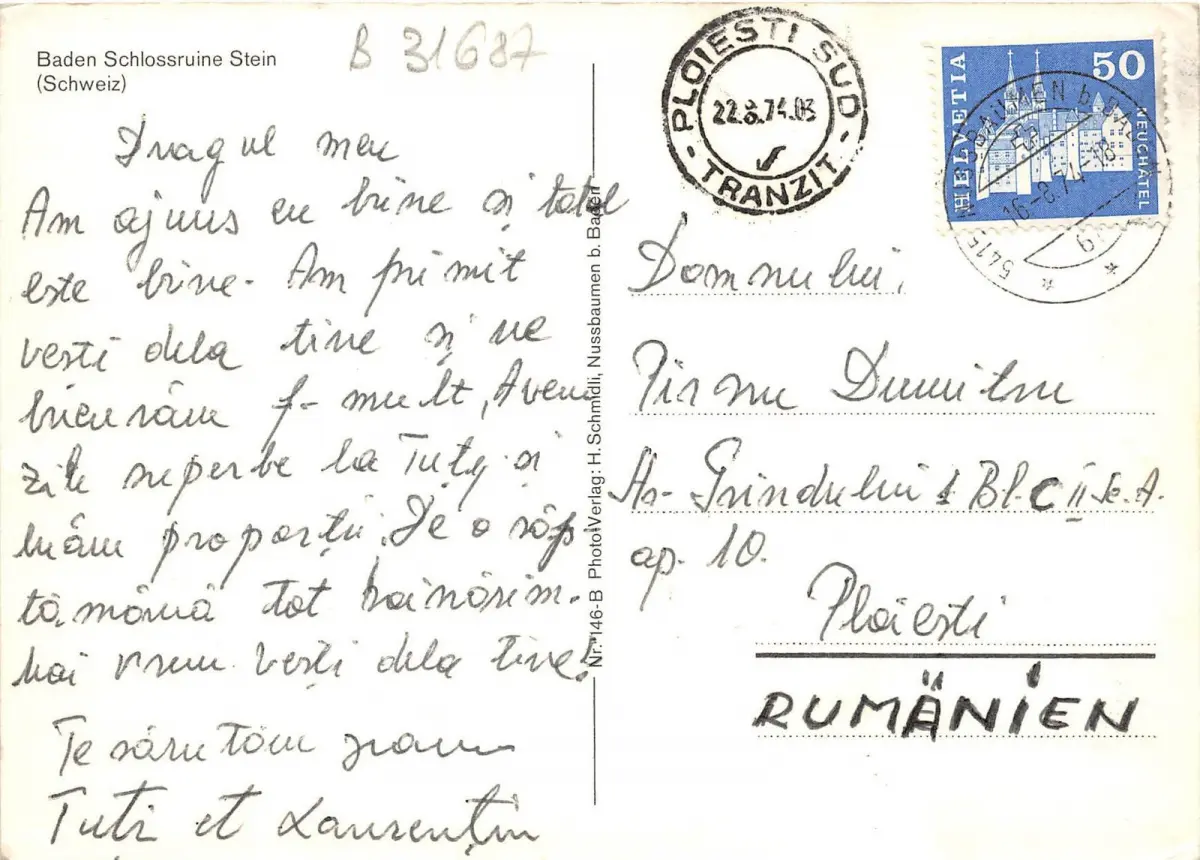 Baden Schlossruine Stein
(Schweiz)
B 31687
Dragul meu
Am ajuns cu bine și totul
este bine. Am primit
vești dela tine și ne
bucurăm f. mult, Avem
zile superbe la Tuți și
luăm proporții. De o săp-
tămână tot hoinărim.
Mai vrem vești dela tine!
Te sărutăm
Tuți et Laurențiu
Nr. 146-B Photo+Verlag: H. Schmidli, Nussbaumen b. Baden
PLOIESTI SUD
22.8.74.03
TRANZIT
HELVETIA
50
NEUCHÂTEL
5415 NUSSBAUMEN b. BADEN
16-8.74-18
Domnului,
Pirnu Dumitru
Str. Grindului 1 Bl. C II Sc. A.
ap. 10.
Ploiești
RUMÄNIEN